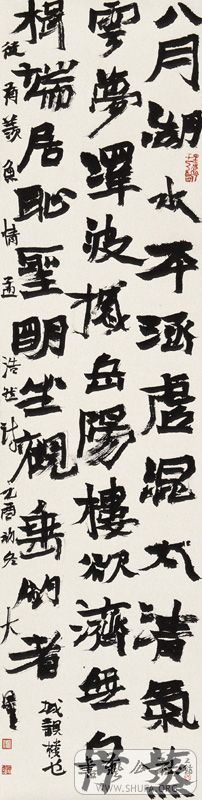 八月湖水平涵虛混太清氣蒸
雲夢澤波撼岳陽樓欲濟無舟
楫端居耻聖明坐觀垂釣者
徒有羨魚情 孟浩然詩 乙酉初冬 大
WWW.SHUFA.ORG